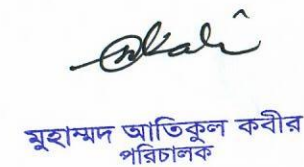 মুহাম্মদ আতিকুল কবীর
পরিচালক